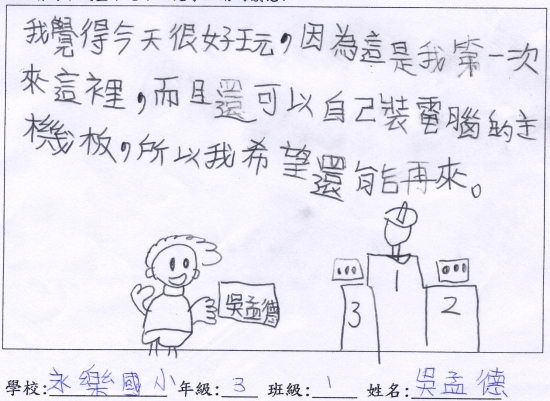 我覺得今天很好玩，因為這是我第一次
來這裡，而且還可以自己裝電腦的主
機板，所以我希望還能再來。
吳孟德
1
3
2
學校：永樂國小 年級：3 班級：1 姓名：吳孟德